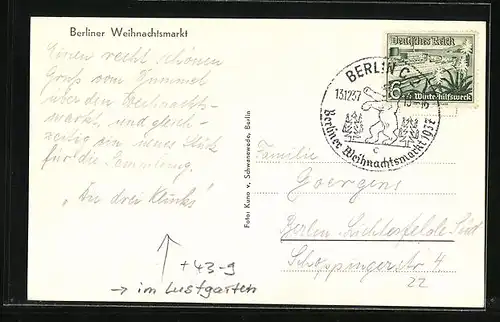 Berliner Weihnachtsmarkt
Einen recht schönen
Gruß vom Bummel
über den Weihnachts-
markt und gleich-
zeitig ein neues Stück
für die Sammlung.
"Die drei
+43-9
→ im Lustgarten
Foto: Kuno v. Schwanewede, Berlin
Deutsches Reich
6+4 Winterhilfswerk
BERLIN C
13.12.37
15-16
c
Berliner Weihnachtsmarkt 1937
Familie
Goergens
Berlin-Lichterfelde Süd
4
22